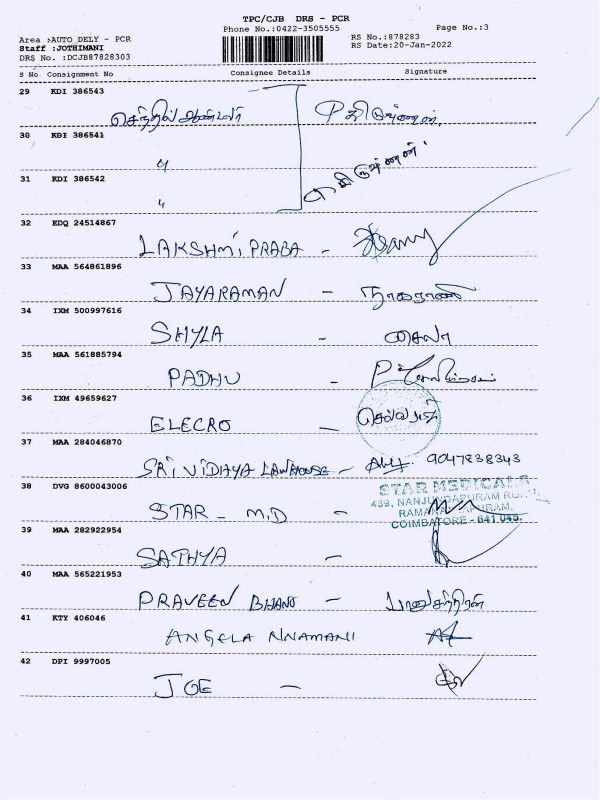 TPC/CJB DRS - PCR
Phone No.:0422-3505555
Page No.:3
Area :AUTO DELY - PCR
RS No.:878283
Staff :JOTHIMANI
RS Date:20-Jan-2022
DRS No. :DCJB87828303
S No Consignment No Consignee Details Signature
29 KDI 386543
செந்தில் ஆண்டவர்
30 KDI 386541
"
31 KDI 386542
"
32 EDQ 24514867
LAKSHMI PRABA -
33 MAA 564861896
JAYARAMAN - நாகராணி
34 IXM 500997616
SHYLA - சைலா
35 MAA 561885794
PADHU -
36 IXM 49659627
ELECRO - செல்வமதி
37 MAA 284046870
SRI VIDHAYA LAWHOUSE - 9047838343
38 DVG 8600043006
STAR MEDICALS
439, NANJUNDAPURAM
STAR - M.D -
COIMBATORE - 641 045.
39 MAA 282922954
SATHYA -
40 MAA 565221953
PRAVEEN BHANO -
41 KTY 406046
ANGELA NNAMANI
42 DPI 9997005
JOE -